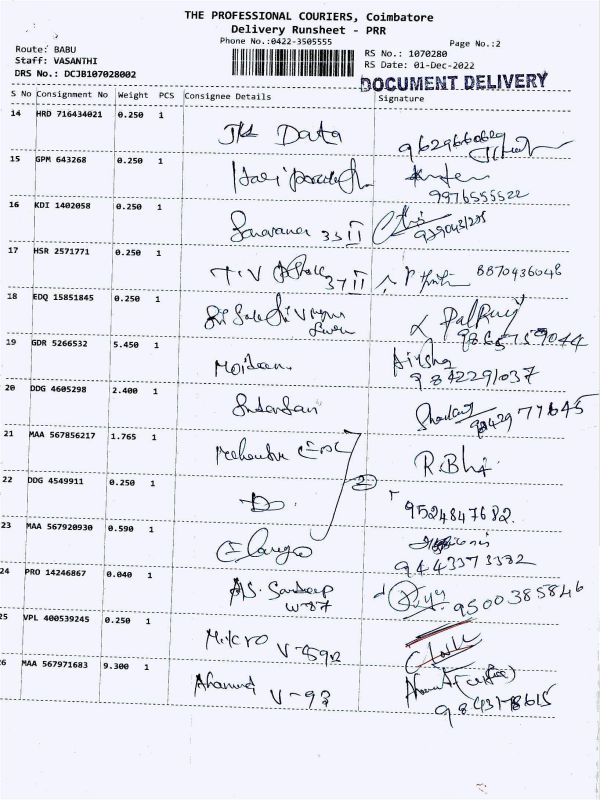 THE PROFESSIONAL COURIERS, Coimbatore
Delivery Runsheet - PRR
Phone No.:0422-3505555
Page No.:2
Route: BABU
RS No.: 1070280
Staff: VASANTHI
RS Date: 01-Dec-2022
DRS No.: DCJB107028002
DOCUMENT DELIVERY
S No Consignment No Weight PCS Consignee Details Signature
14 HRD 716434021 0.250 1
JK Data
15 GPM 643268 0.250 1
9976555522
16 KDI 1402058 0.250 1
Saravanan 33 II
17 HSR 2571771 0.250 1
T.V 37 II 8870436048
18 EDQ 15851845 0.250 1
19 GDR 5266532 5.450 1
Moideen
9842291037
20 DDG 4605298 2.400 1
Sudarsan
21 MAA 567856217 1.765 1
R.Bhi
22 DDG 4549911 0.250 1
Do 2
9524847682.
23 MAA 567920930 0.590 1
9443373382
24 PRO 14246867 0.040 1
AS. Sandeep
W-87
9500385846
25 VPL 400539245 0.250 1
Mikro V-592
26 MAA 567971683 9.300 1
Ahamed V-93
9843178615